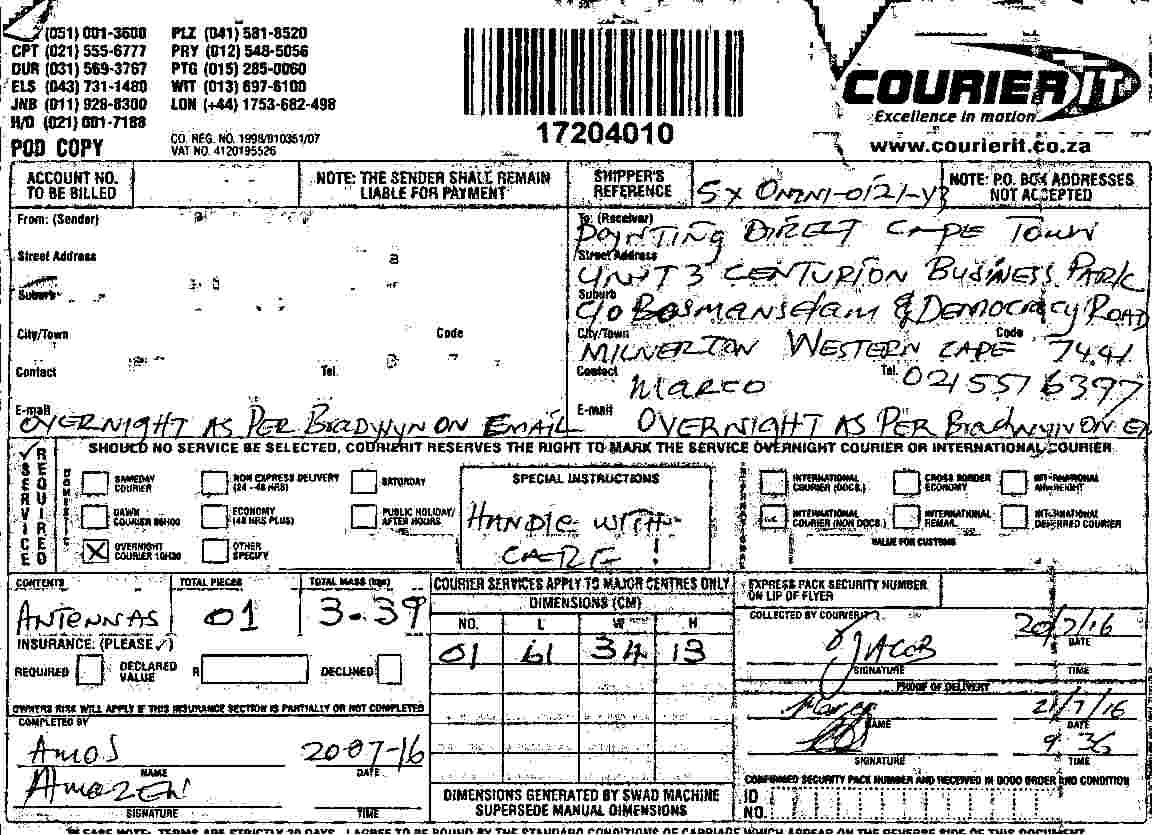 (051) 001-3600 PLZ (041) 581-8520
CPT (021) 555-6777 PRY (012) 548-5056
DUR (031) 569-3767 PTG (015) 285-0060
ELS (043) 731-1480 WIT (013) 697-6100
JNB (011) 928-8300 LON (+44) 1753-682-498
H/O (021) 001-7188
POD COPY
CO. REG. NO. 1998/910351/07
VAT NO. 4120195526
17204010
COURIER IT
Excellence in motion
www.courierit.co.za
ACCOUNT NO. TO BE BILLED
NOTE: THE SENDER SHALL REMAIN LIABLE FOR PAYMENT
SHIPPER'S REFERENCE
5x OMNI-0121-V3
NOTE: P.O. BOX ADDRESSES NOT ACCEPTED
From: (Sender)
Street Address
Suburb
City/Town Code
Contact Tel.
E-mail
OVERNIGHT AS PER BRADWYN ON EMAIL
To: (Receiver)
POYNTING DIRECT CAPE TOWN
Street Address
UNIT 3 CENTURION BUSINESS PARK
Suburb
C/O BOSMANSDAM & DEMOCRACY ROAD
City/Town Code
MILNERTON WESTERN CAPE 7441
Contact Tel.
MARCO
E-mail
OVERNIGHT AS PER BRADWYN ON
SHOULD NO SERVICE BE SELECTED, COURIERIT RESERVES THE RIGHT TO MARK THE SERVICE OVERNIGHT COURIER OR INTERNATIONAL COURIER
✓ SERVICE REQUIRED
DOMESTIC
SAMEDAY COURIER
NON EXPRESS DELIVERY (24 - 48 HRS)
SATURDAY
DAWN COURIER
ECONOMY (48 HRS PLUS)
PUBLIC HOLIDAY/ AFTER HOURS
OVERNIGHT COURIER 10H30
OTHER SPECIFY
SPECIAL INSTRUCTIONS
HANDLE WITH
CARE !
INTERNATIONAL COURIER (DOCS.)
CROSS BORDER ECONOMY
INTERNATIONAL AIRFREIGHT
INTERNATIONAL COURIER (NON DOCS.)
INTERNATIONAL REMAIL
INTERNATIONAL DEFERRED COURIER
VALUE FOR CUSTOMS
CONTENTS
ANTENNAS
TOTAL PIECES
01
TOTAL MASS (kgs)
3.39
INSURANCE: (PLEASE ✓)
REQUIRED
DECLARED VALUE R
DECLINED
OWNERS RISK WILL APPLY IF THIS INSURANCE SECTION IS PARTIALLY OR NOT COMPLETED
COMPLETED BY
AMOS 20-07-16
NAME DATE
SIGNATURE TIME
COURIER SERVICES APPLY TO MAJOR CENTRES ONLY
DIMENSIONS (CM)
NO. L W H
01 61 34 13
DIMENSIONS GENERATED BY SWAD MACHINE
SUPERSEDE MANUAL DIMENSIONS
EXPRESS PACK SECURITY NUMBER ON LIP OF FLYER
COLLECTED BY COURIERIT
JACOB 20/7/16
DATE
SIGNATURE TIME
PROOF OF DELIVERY
Marco 21/7/16
NAME DATE
9:36
SIGNATURE TIME
CONFIRMED SECURITY PACK NUMBER AND RECEIVED IN GOOD ORDER AND CONDITION
ID NO.
PLEASE NOTE: TERMS ARE STRICTLY 30 DAYS. I AGREE TO BE BOUND BY THE STANDARD CONDITIONS OF CARRIAGE WHICH APPEAR ON THE REVERSE SIDE OF THIS DOCUMENT